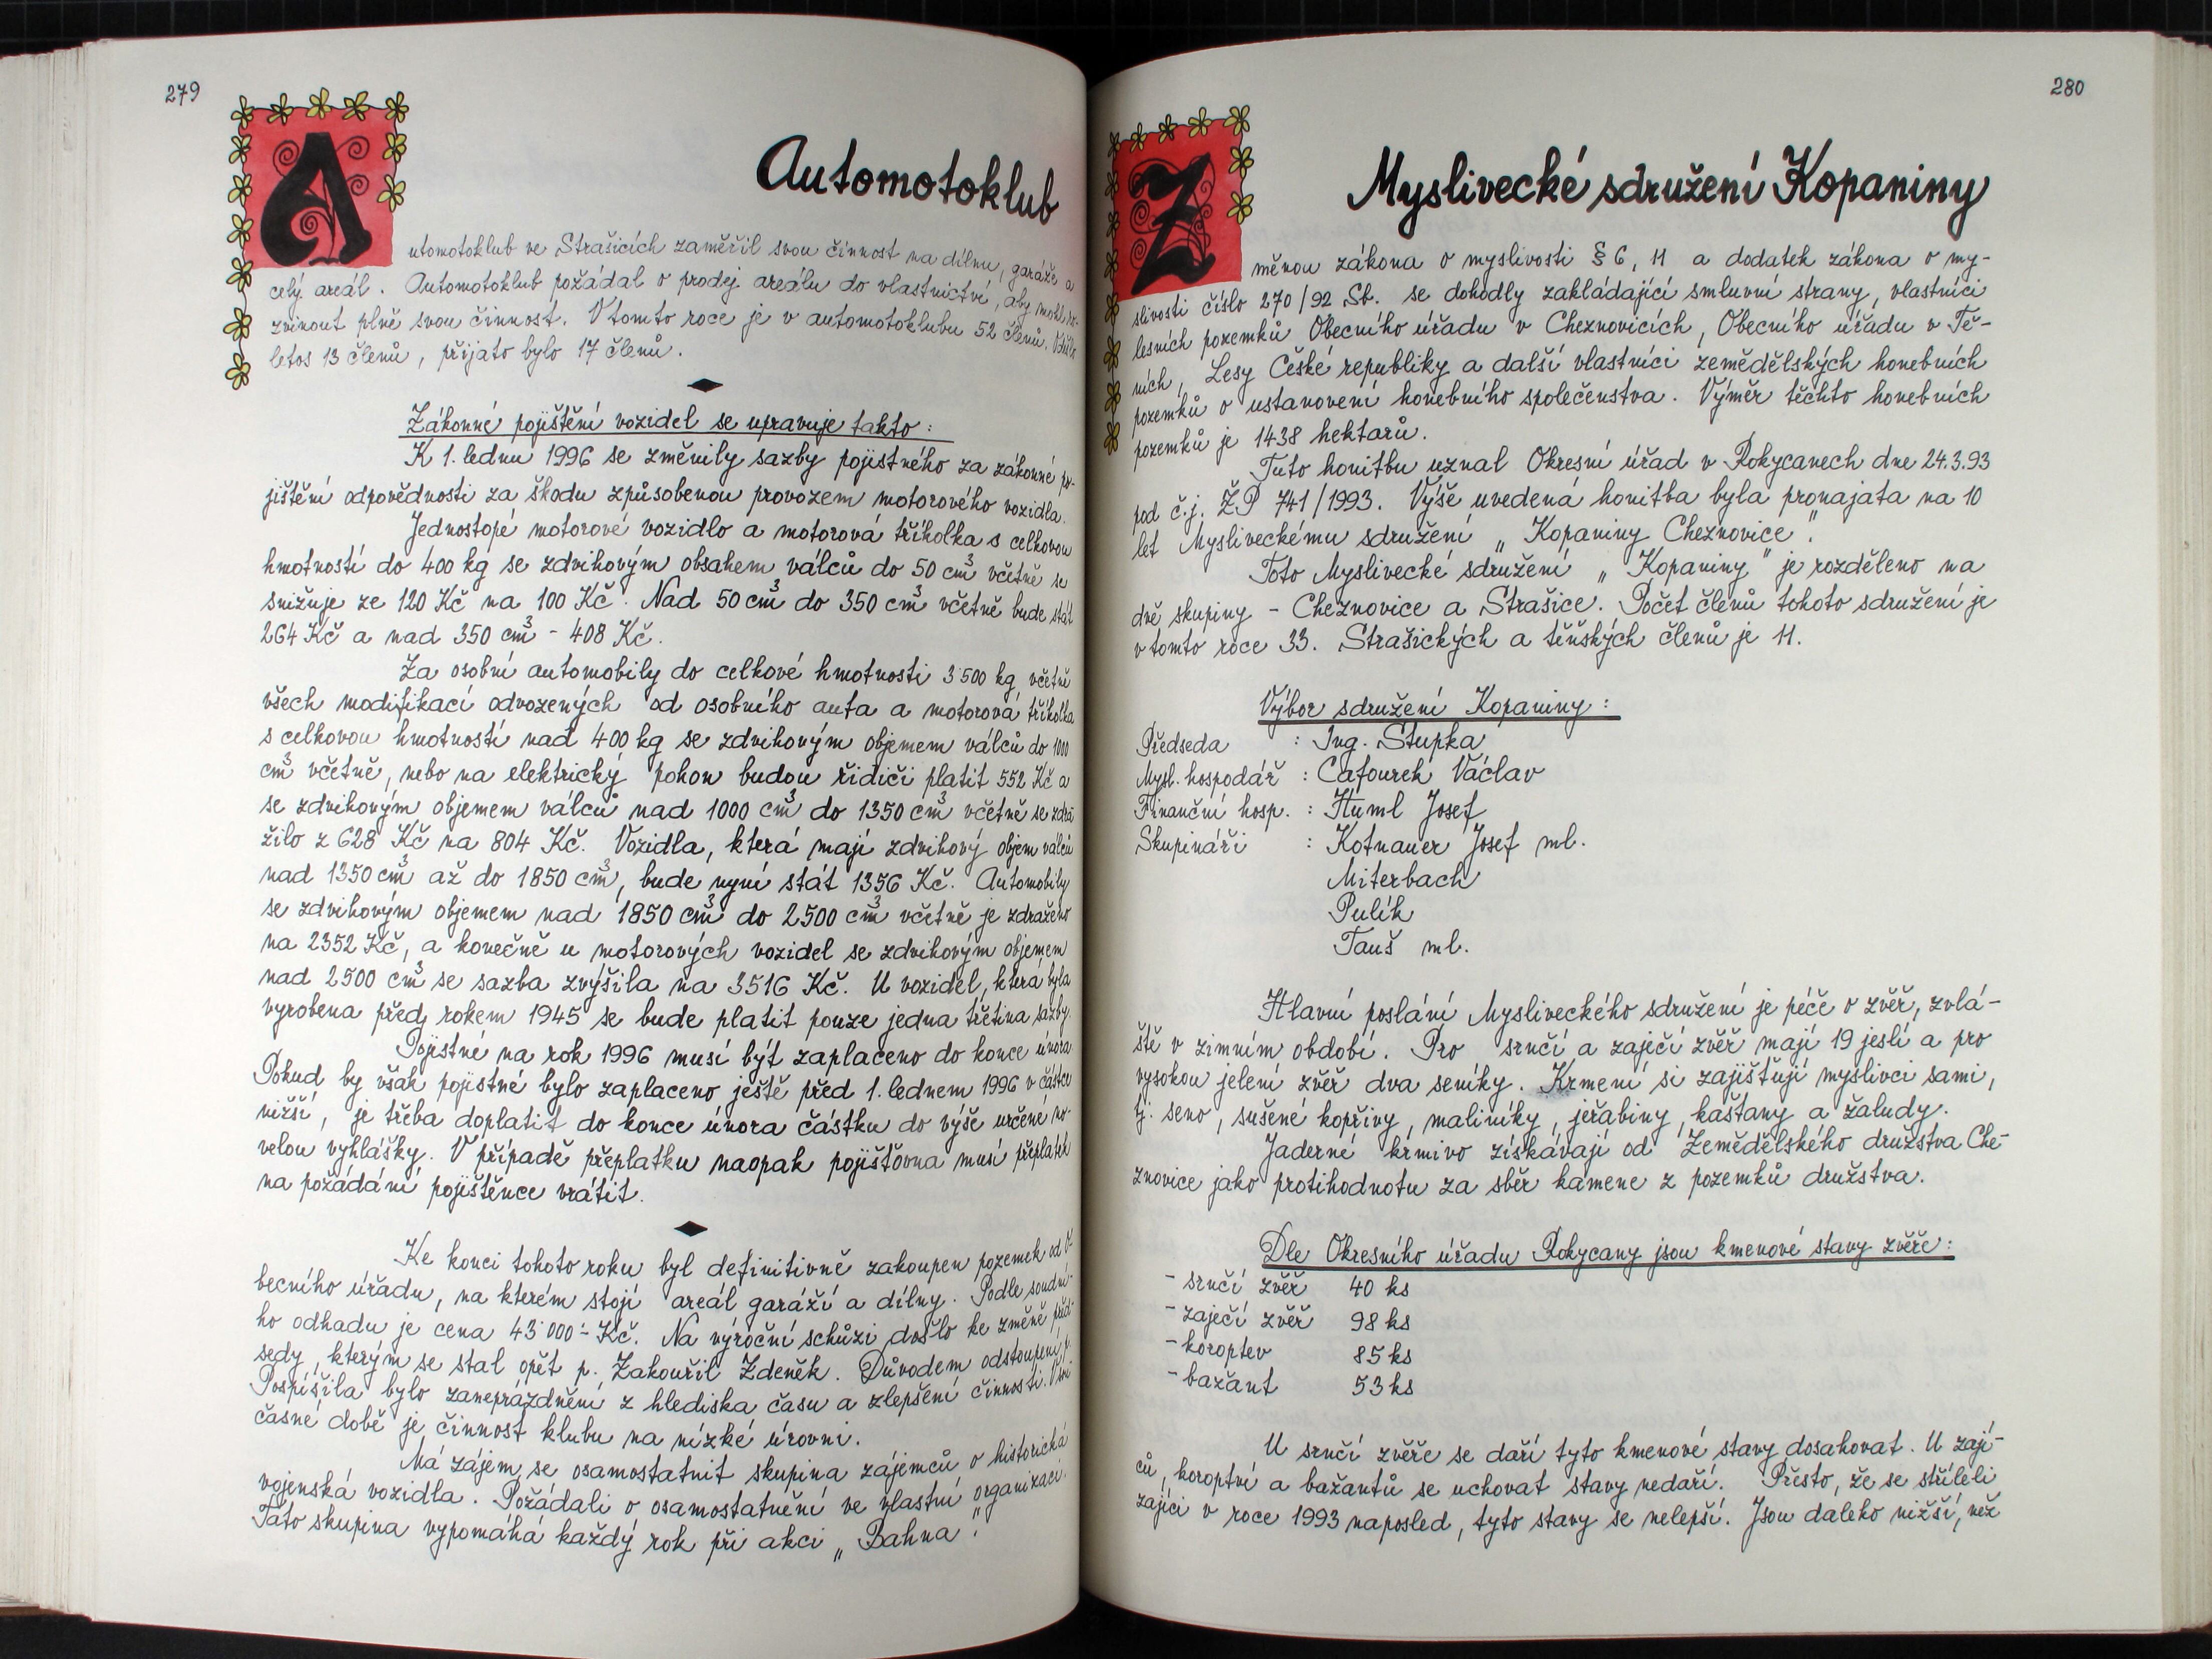 279
Automotoklub
Automotoklub ve Strašicích zaměřil svou činnost na dílnu, garáže a
celý areál. Automotoklub požádal o prodej areálu do vlastnictví, aby mohl
zvinout plně svou činnost. V tomto roce je v automotoklubu 52 členů.
letos 13 členů, přijato bylo 17 členů.
Zákonné pojištění vozidel se upravuje takto:
K 1. lednu 1996 se změnily sazby pojistného za zákonné po-
jištění odpovědnosti za škodu způsobenou provozem motorového vozidla.
Jednostopé motorové vozidlo a motorová tříkolka s celkovou
hmotností do 400 kg se zdvihovým obsahem válců do 50 cm³ včetně se
snižuje ze 120 Kč na 100 Kč. Nad 50 cm³ do 350 cm³ včetně bude stát
264 Kč a nad 350 cm³ - 408 Kč.
Za osobní automobily do celkové hmotnosti 3 500 kg, včetně
všech modifikací odvozených od osobního auta a motorová tříkolka
s celkovou hmotností nad 400 kg se zdvihovým objemem válců do 1000
cm³ včetně, nebo na elektrický pohon budou řidiči platit 552 Kč a
se zdvihovým objemem válců nad 1000 cm³ do 1350 cm³ včetně se zdra
žilo z 628 Kč na 804 Kč. Vozidla, která mají zdvihový objem válců
nad 1350 cm³ až do 1850 cm³, bude nyní stát 1356 Kč. Automobily
se zdvihovým objemem nad 1850 cm³ do 2500 cm³ včetně je zdraženo
na 2352 Kč, a konečně u motorových vozidel se zdvihovým objemem
nad 2500 cm³ se sazba zvýšila na 3516 Kč. U vozidel, která byla
vyrobena před rokem 1945 se bude platit pouze jedna třetina sazby.
Pojistné na rok 1996 musí být zaplaceno do konce února
Pokud by však pojistné bylo zaplaceno ještě před 1. lednem 1996 v částce
nižší, je třeba doplatit do konce února částku do výše určené no-
velou vyhlášky. V případě přeplatku naopak pojišťovna musí přeplatek
na požádání pojištěnce vrátit.
Ke konci tohoto roku byl definitivně zakoupen pozemek od O-
becního úřadu, na kterém stojí areál garáží a dílny. Podle soudní-
ho odhadu je cena 43'000.- Kč. Na výroční schůzi došlo ke změně před-
sedy, kterým se stal opět p. Zakouřil Zdeněk. Důvodem odstoupení p.
Pospíšila bylo zaneprázdnění z hlediska času a zlepšení činnosti.
časné době je činnost klubu na nízké úrovni.
Má zájem se osamostatnit skupina zájemců o historická
vojenská vozidla. Požádali o osamostatnění ve vlastní organizaci.
Tato skupina vypomáhá každý rok při akci „Bahna".
280
Myslivecké sdružení Kopaniny
Změnou zákona o myslivosti § 6, 11 a dodatek zákona o my-
slivosti číslo 270/92 Sb. se dohodly zakládající smluvní strany, vlastníci
lesních pozemků Obecního úřadu v Cheznovicích, Obecního úřadu v Tě-
ních, Lesy České republiky a další vlastníci zemědělských honebních
pozemků o ustanovení honebního společenstva. Výměr těchto honebních
pozemků je 1438 hektarů.
Tuto honitbu uznal Okresní úřad v Rokycanech dne 24.3.93
pod č.j. ŽP 741/1993. Výše uvedená honitba byla pronajata na 10
let Mysliveckému sdružení „Kopaniny Cheznovice".
Toto Myslivecké sdružení „Kopaniny" je rozděleno na
dvě skupiny - Cheznovice a Strašice. Počet členů tohoto sdružení je
v tomto roce 33. Strašických a těňských členů je 11.
Výbor sdružení Kopaniny:
Předseda : Ing. Stupka
Mysl. hospodář : Cafourek Václav
Finanční hosp. : Huml Josef
Skupináři : Kotnauer Josef ml.
Miterbach
Pulík
Tauš ml.
Hlavní poslání Mysliveckého sdružení je péče o zvěř, zvlá-
ště v zimním období. Pro srnčí a zaječí zvěř mají 19 jeslí a pro
vysokou jelení zvěř dva seníky. Krmení si zajišťují myslivci sami,
tj. seno, sušené kopřivy, maliníky, jeřabiny, kaštany a žaludy.
Jaderné krmivo získávají od Zemědělského družstva Che-
znovice jako protihodnotu za sběr kamene z pozemků družstva.
Dle Okresního úřadu Rokycany jsou kmenové stavy zvěře:
- srnčí zvěř 40 ks
- zaječí zvěř 98 ks
- koroptev 85 ks
- bažant 53 ks
U srnčí zvěře se daří tyto kmenové stavy dosahovat. U zají-
ců, koroptví a bažantů se uchovat stavy nedaří. Přesto, že se stříleli
zajíci v roce 1993 naposled, tyto stavy se nelepší. Jsou daleko nižší, než